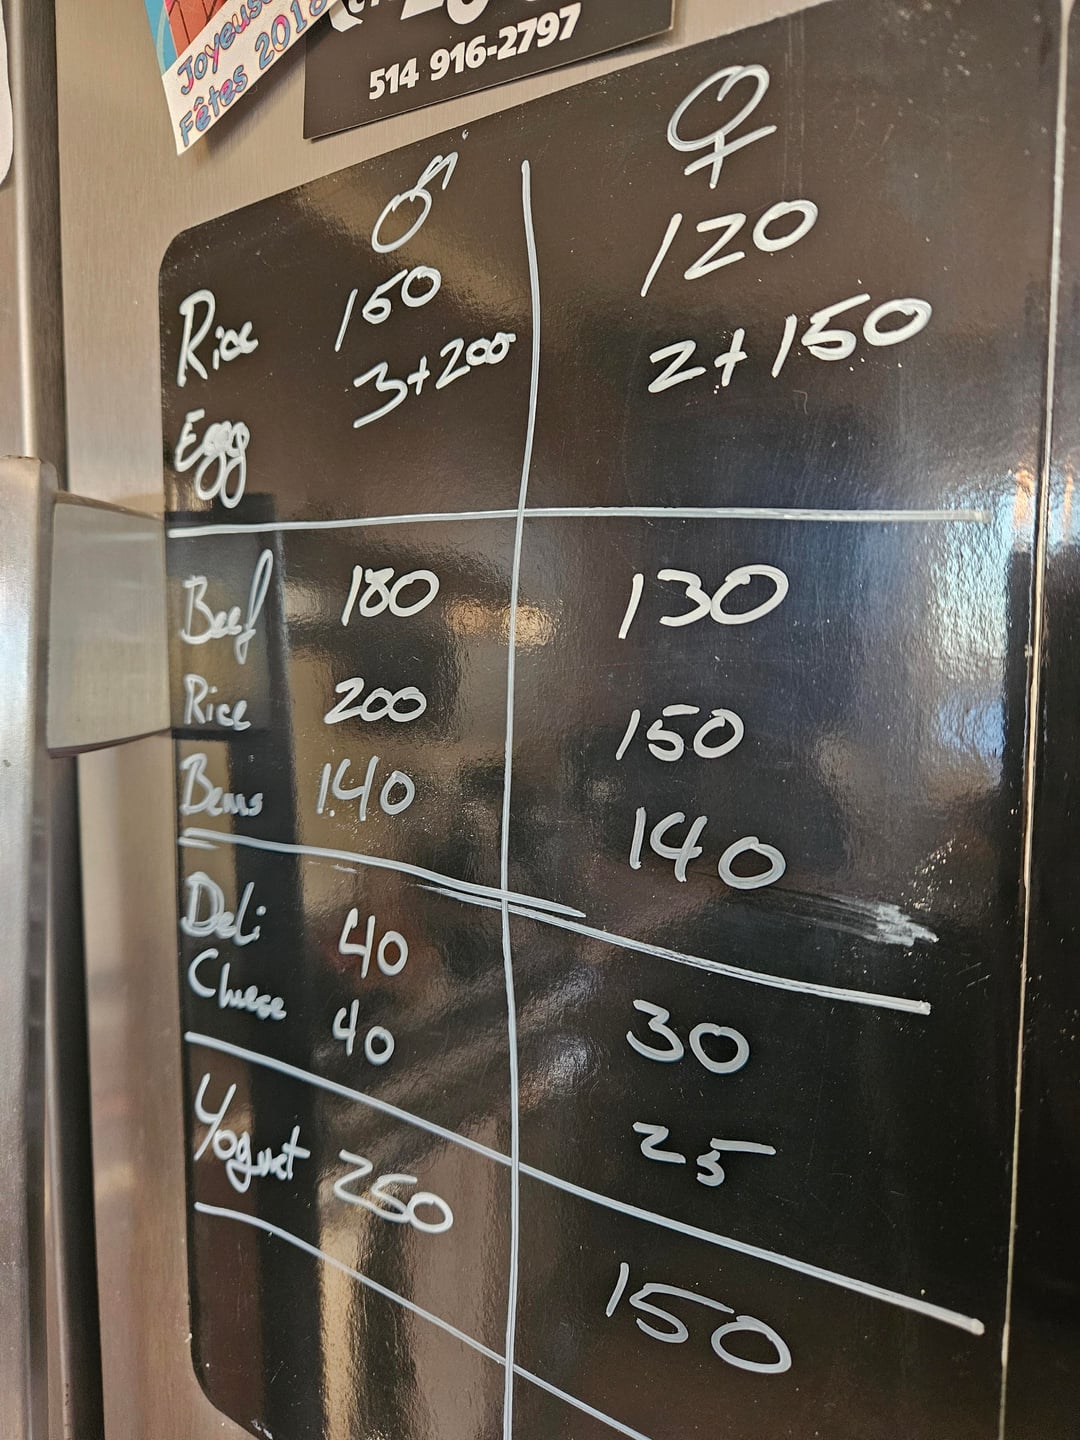 Joyeuses
Fêtes 2018
514 916-2797
♂ ♀
Rice 150 120
Egg 3+200 2+150
Beef 180 130
Rice 200 150
Beans 140 140
Deli 40 30
Cheese 40 25
Yogurt 250 150